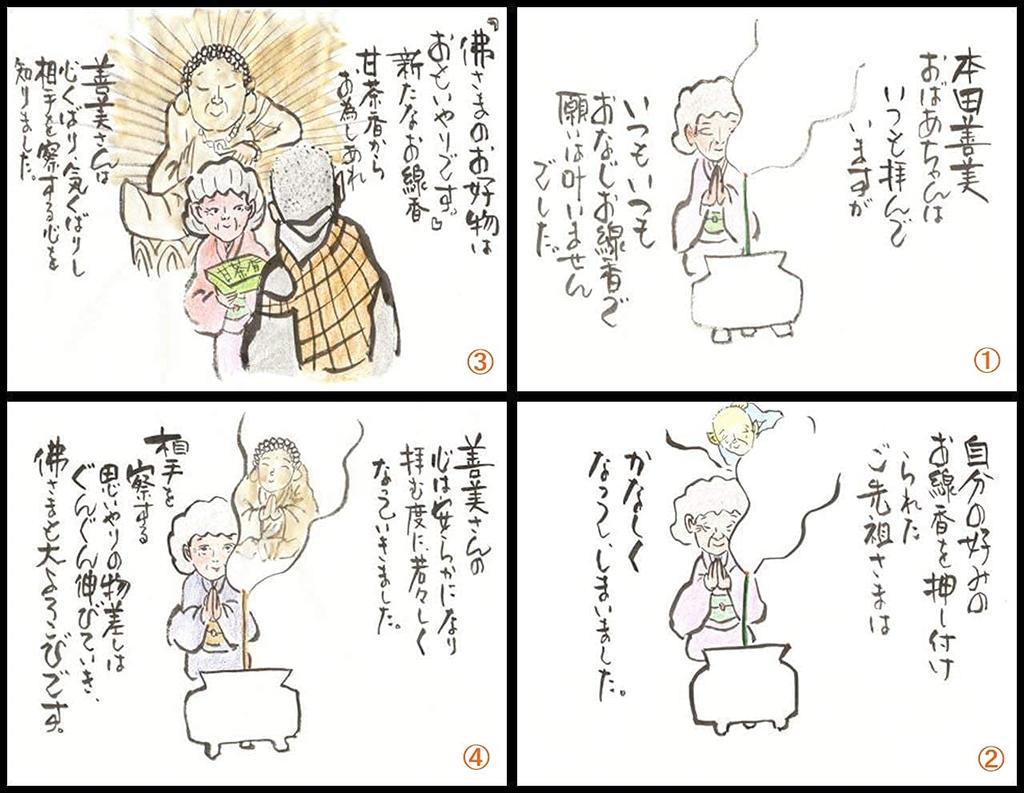 本田善美
おばあちゃんは
いつも拝んで
いますが
いつもいつも
おなじお線香で
願いは叶いません
でした。
①
自分の好みの
お線香を押し付け
られた
ご先祖さまは
かなしく
なってしまいました。
②
『佛さまのお好物は
おもいやりです。
新たなお線香
甘茶香から
お為しあれ
甘茶香
善美さんは
心くばり、気くばりし
相手を察する心を
知りました。
③
善美さんの
心は安らかになり
拝む度に若々しく
なっていきました。
相手を
察する
思いやりの物差しは
ぐんぐん伸びていき、
佛さまも大よろこびです。
④